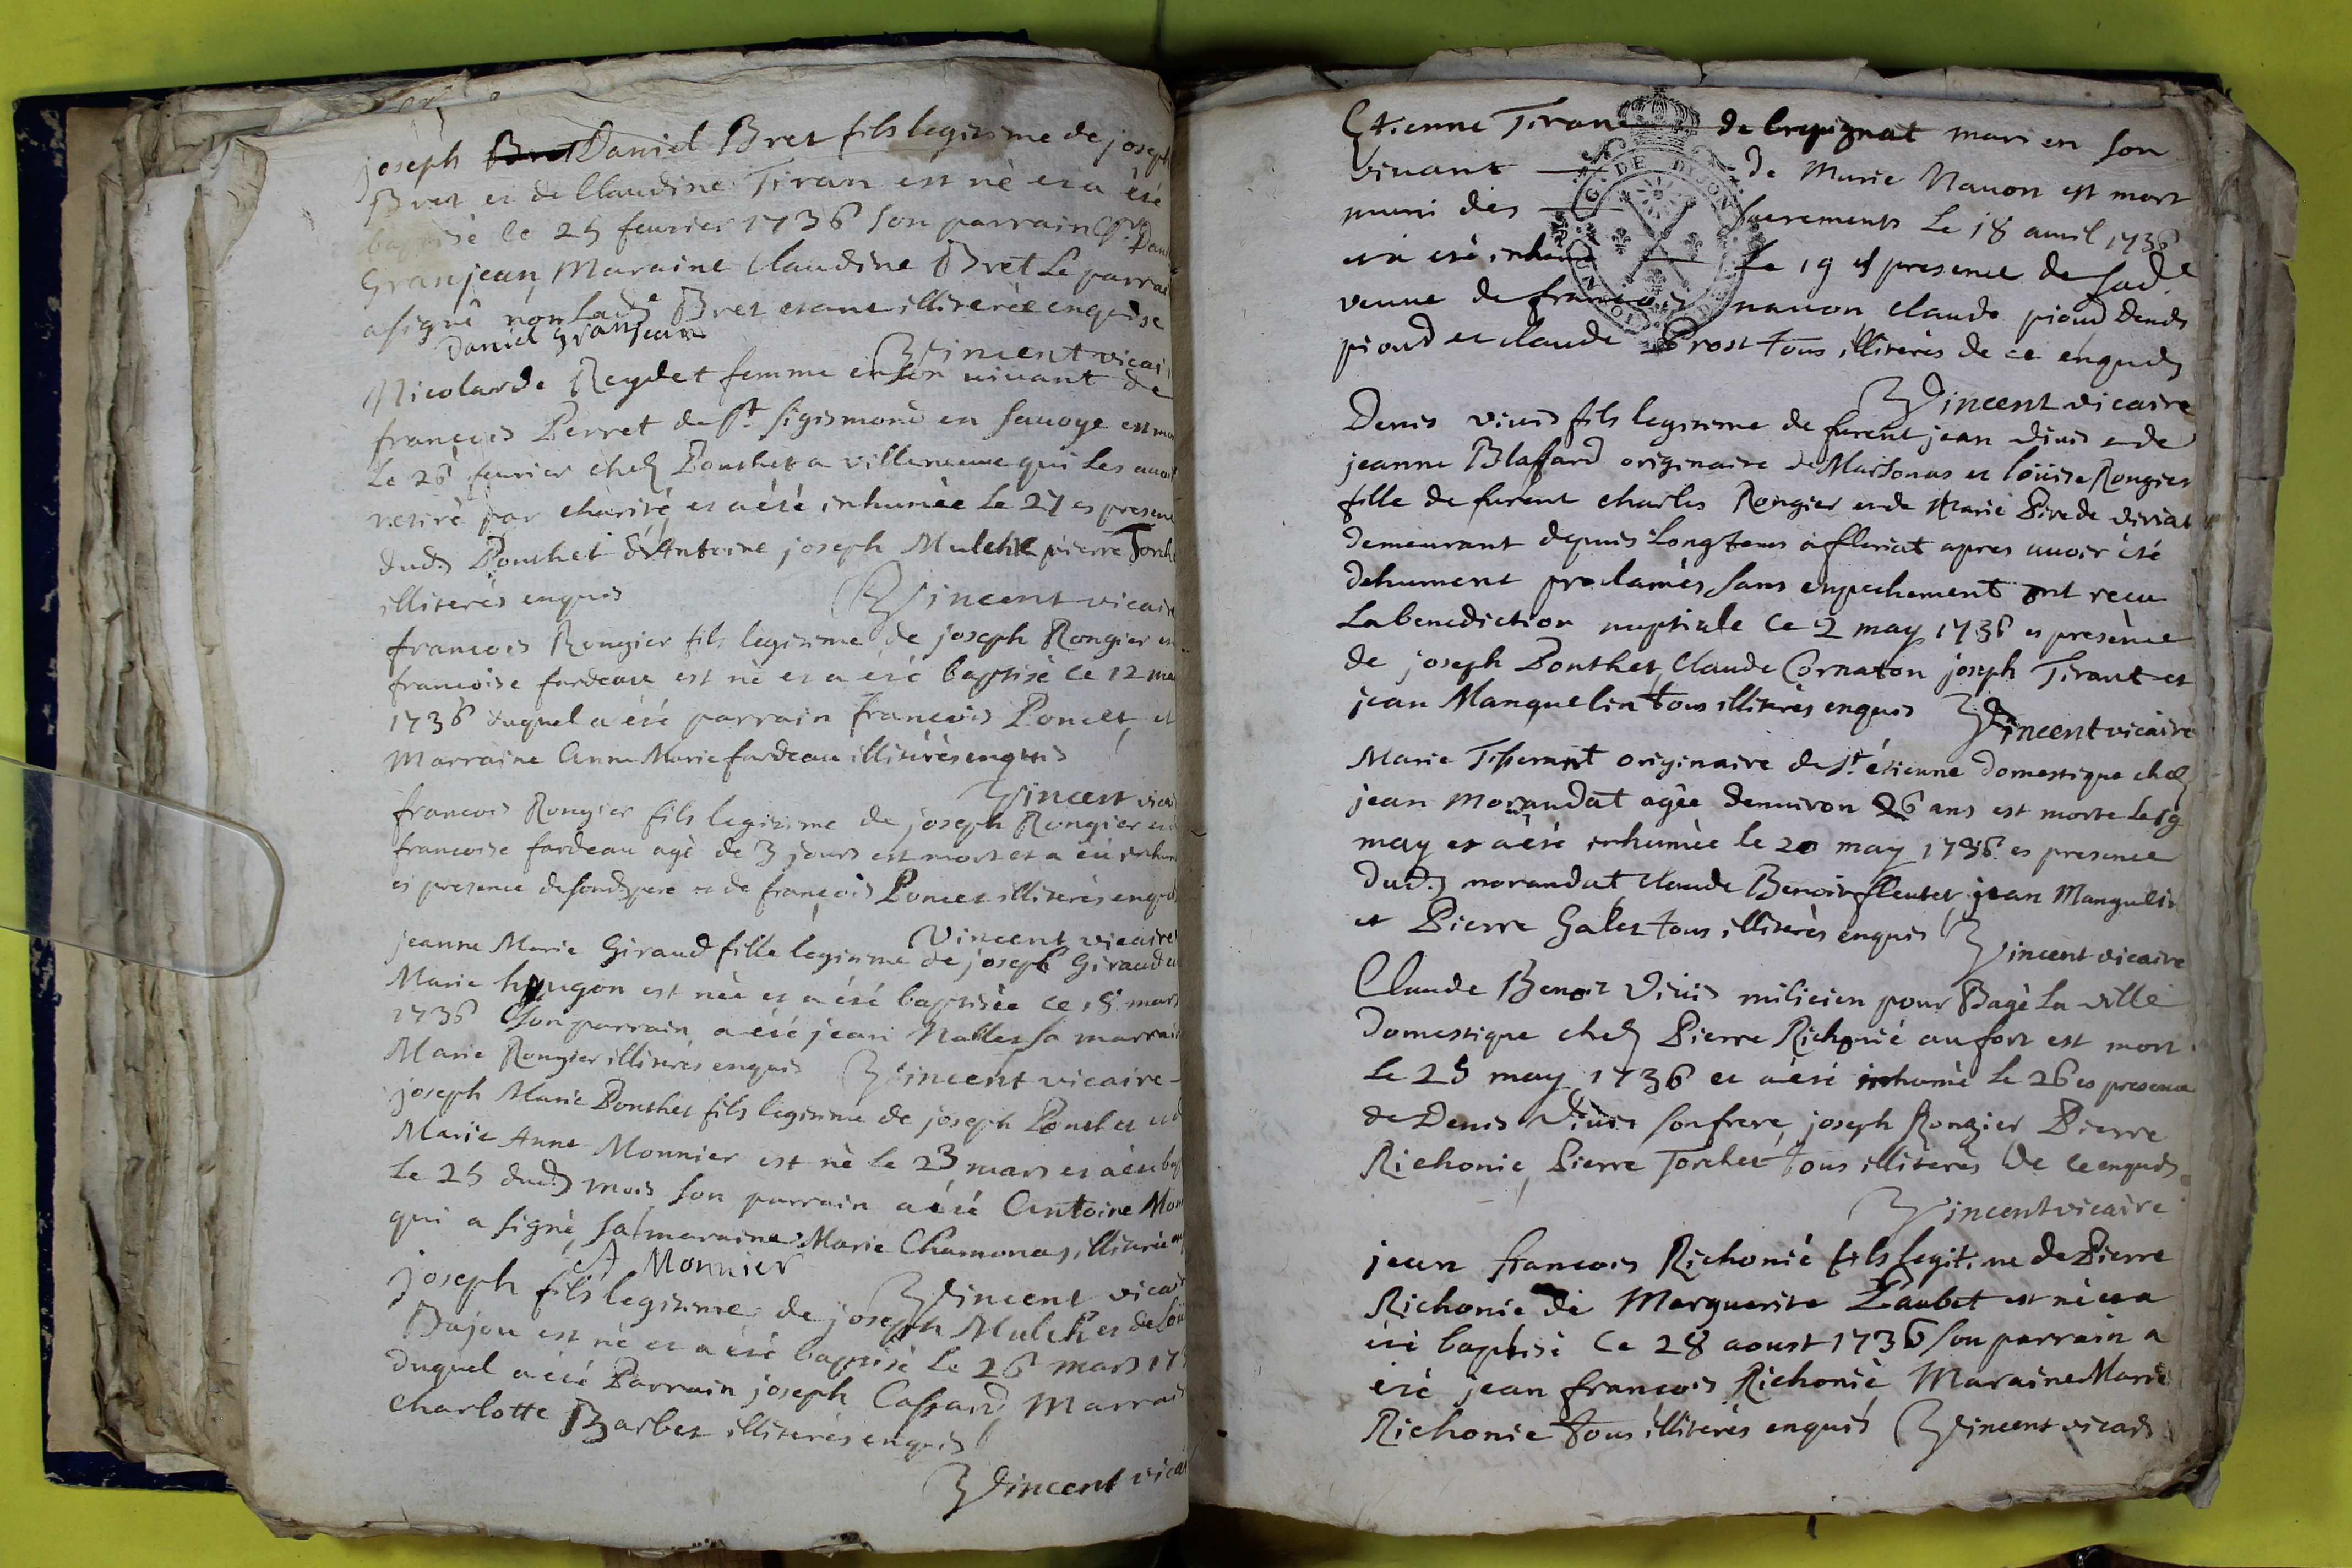 joseph Bret Daniel Bret fils legitime de joseph
Bret et de Claudine Tiran est né et a été
baptisé le 25 feurier 1736 son parrain Daniel
Granjean Maraine Claudine Bret Le parrai
a signé non lade Bret etant illiterèe enquise
Daniel Granjean
Vincent vicai
Nicolarde Reydet femme en son viuant de
françois Perret de St. sigismond en sauoye est mor
Le 26 feurier chez Ponthet a villeneuue qui Les auoit
retiré par charité et a été inhumèe Le 27 es presen
dud. Ponthet & Antoine joseph Mulchi pierre Torch
illiterès enquis
Vincent vicair
francois Rongier fils legitime de joseph Rongier et
francoise fardeau est né et a été baptisé ce 12 ma
1736 duquel a été parrain françois Poncet, et
Marraine Anne Marie fardeau illiterès enquis
Vincent vicai
francois Rongier fils legitime de joseph Rongier et
francoise fardeau agé de 3 jours est mort et a été inhum
es presence de sond. pere et de françois Poncet illiterès enquis
Vincent vicaire
jeanne Marie Giraud fille legitime de joseph Giraud et
Marie hugon est née et a été baptisèe ce 18 mars
1736 son parrain a été jean Nallet sa marrai
Marie Rongier illiterès enquis
Vincent vicaire
joseph Marie Ponthet fils legitime de joseph Ponthet et
Marie Anne Monnier est né Le 23 mars et a été bap
Le 25 dud. mois son parrain a été Antoine Mon
qui a signé, sa maraine Marie Chamonas, illiterée
A Monnier
Vincent vicair
joseph fils legitime de joseph Mulchi et de Loü
Dujou est né et a été baptisé Le 26 mars 17
duquel a été Parrain joseph Cassard, Marrai
Charlotte Barbet illiterès enquis
Vincent vicai
Etienne Tirant de Crepignat mari en son
viuant de Marie Nauon est mort
muni des sacrements Le 18 auril 1736
et a été inhumé Le 19 es presence de sade
veuue de francois nauon claude pioud Denis
pioud et claude Prost tous illiterès de ce enquis
Vincent vicaire
Denis viuis fils legitime de furent jean viuis et de
jeanne Blaffard originaire de Marsonas et loüise Rongier
fille de furent charles Rongier et de Marie Pire de viriat
demeurant depuis Longtems a fleriat apres auoir été
dehument proclamès sans enpechement ont recu
La benediction nuptiale ce 2 may 1736 es presènce
de joseph Ponthet, Claude Cornaton joseph Tirant et
jean Manguelin tous illiterès enquis
Vincent vicaire
Marie Tisserant originaire de St. étienne domestique chez
jean morandat agèe denuiron 26 ans est morte Le 19
may et a été inhumèe le 20 may 1736 es presence
dud. morandat, claude Benoit fleutet, jean Manguelin
et Pierre Galet tous illiterès enquis
Vincent vicaire
Claude Benoit Viuis milicien pour Bagé La ville
domestique chez Pierre Richonié au fort est mort
Le 25 may 1736 et a été inhumé Le 26 es presence
de Denis Viuis son frere, joseph Rongier Pierre
Richonie, Pierre Torchet tous illiterès de ce enquis
Vincent vicaire
jean francois Richonié fils legitime de Pierre
Richonie de Marguerite Laubet est né et a
été baptisé ce 28 aoust 1736 son parrain a
été jean francois Richonié Maraine Marie
Richonie tous illiterès enquis
Vincent vicair
G. DE DIJON